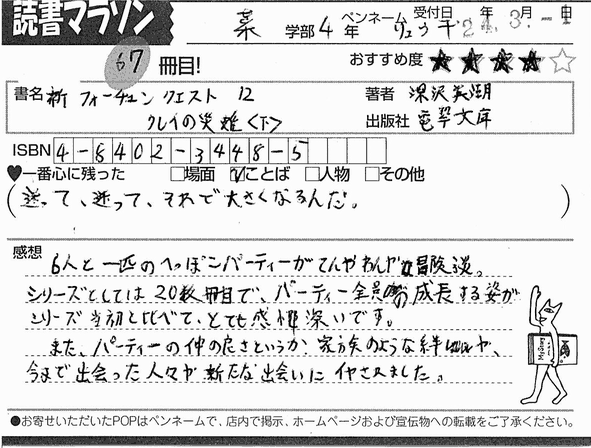 読書マラソン
薬 学部 4 年 ペンネーム リュウ平 受付日 24年 3月 -1日
67 冊目! おすすめ度 ★★★★☆
書名 新フォーチュンクエスト 12 著者 深沢美潮
クレイの災難<下> 出版社 電撃文庫
ISBN 4-8402-3448-5
♥一番心に残った □場面 ☑ことば □人物 □その他
(迷って、迷って、それで大きくなるんだ。)
感想 6人と一匹のへっぽこパーティーがてんやわんやな冒険談。
シリーズとしては20数冊目で、パーティー全員の成長する姿が
シリーズ当初と比べて、とても感慨深いです。
また、パーティーの仲の良さというか、家族のような絆や、
今まで出会った人々や新たな出会いにイヤされました。
●お寄せいただいたPOPはペンネームで、店内で掲示、ホームページおよび宣伝物への転載をご了承ください。